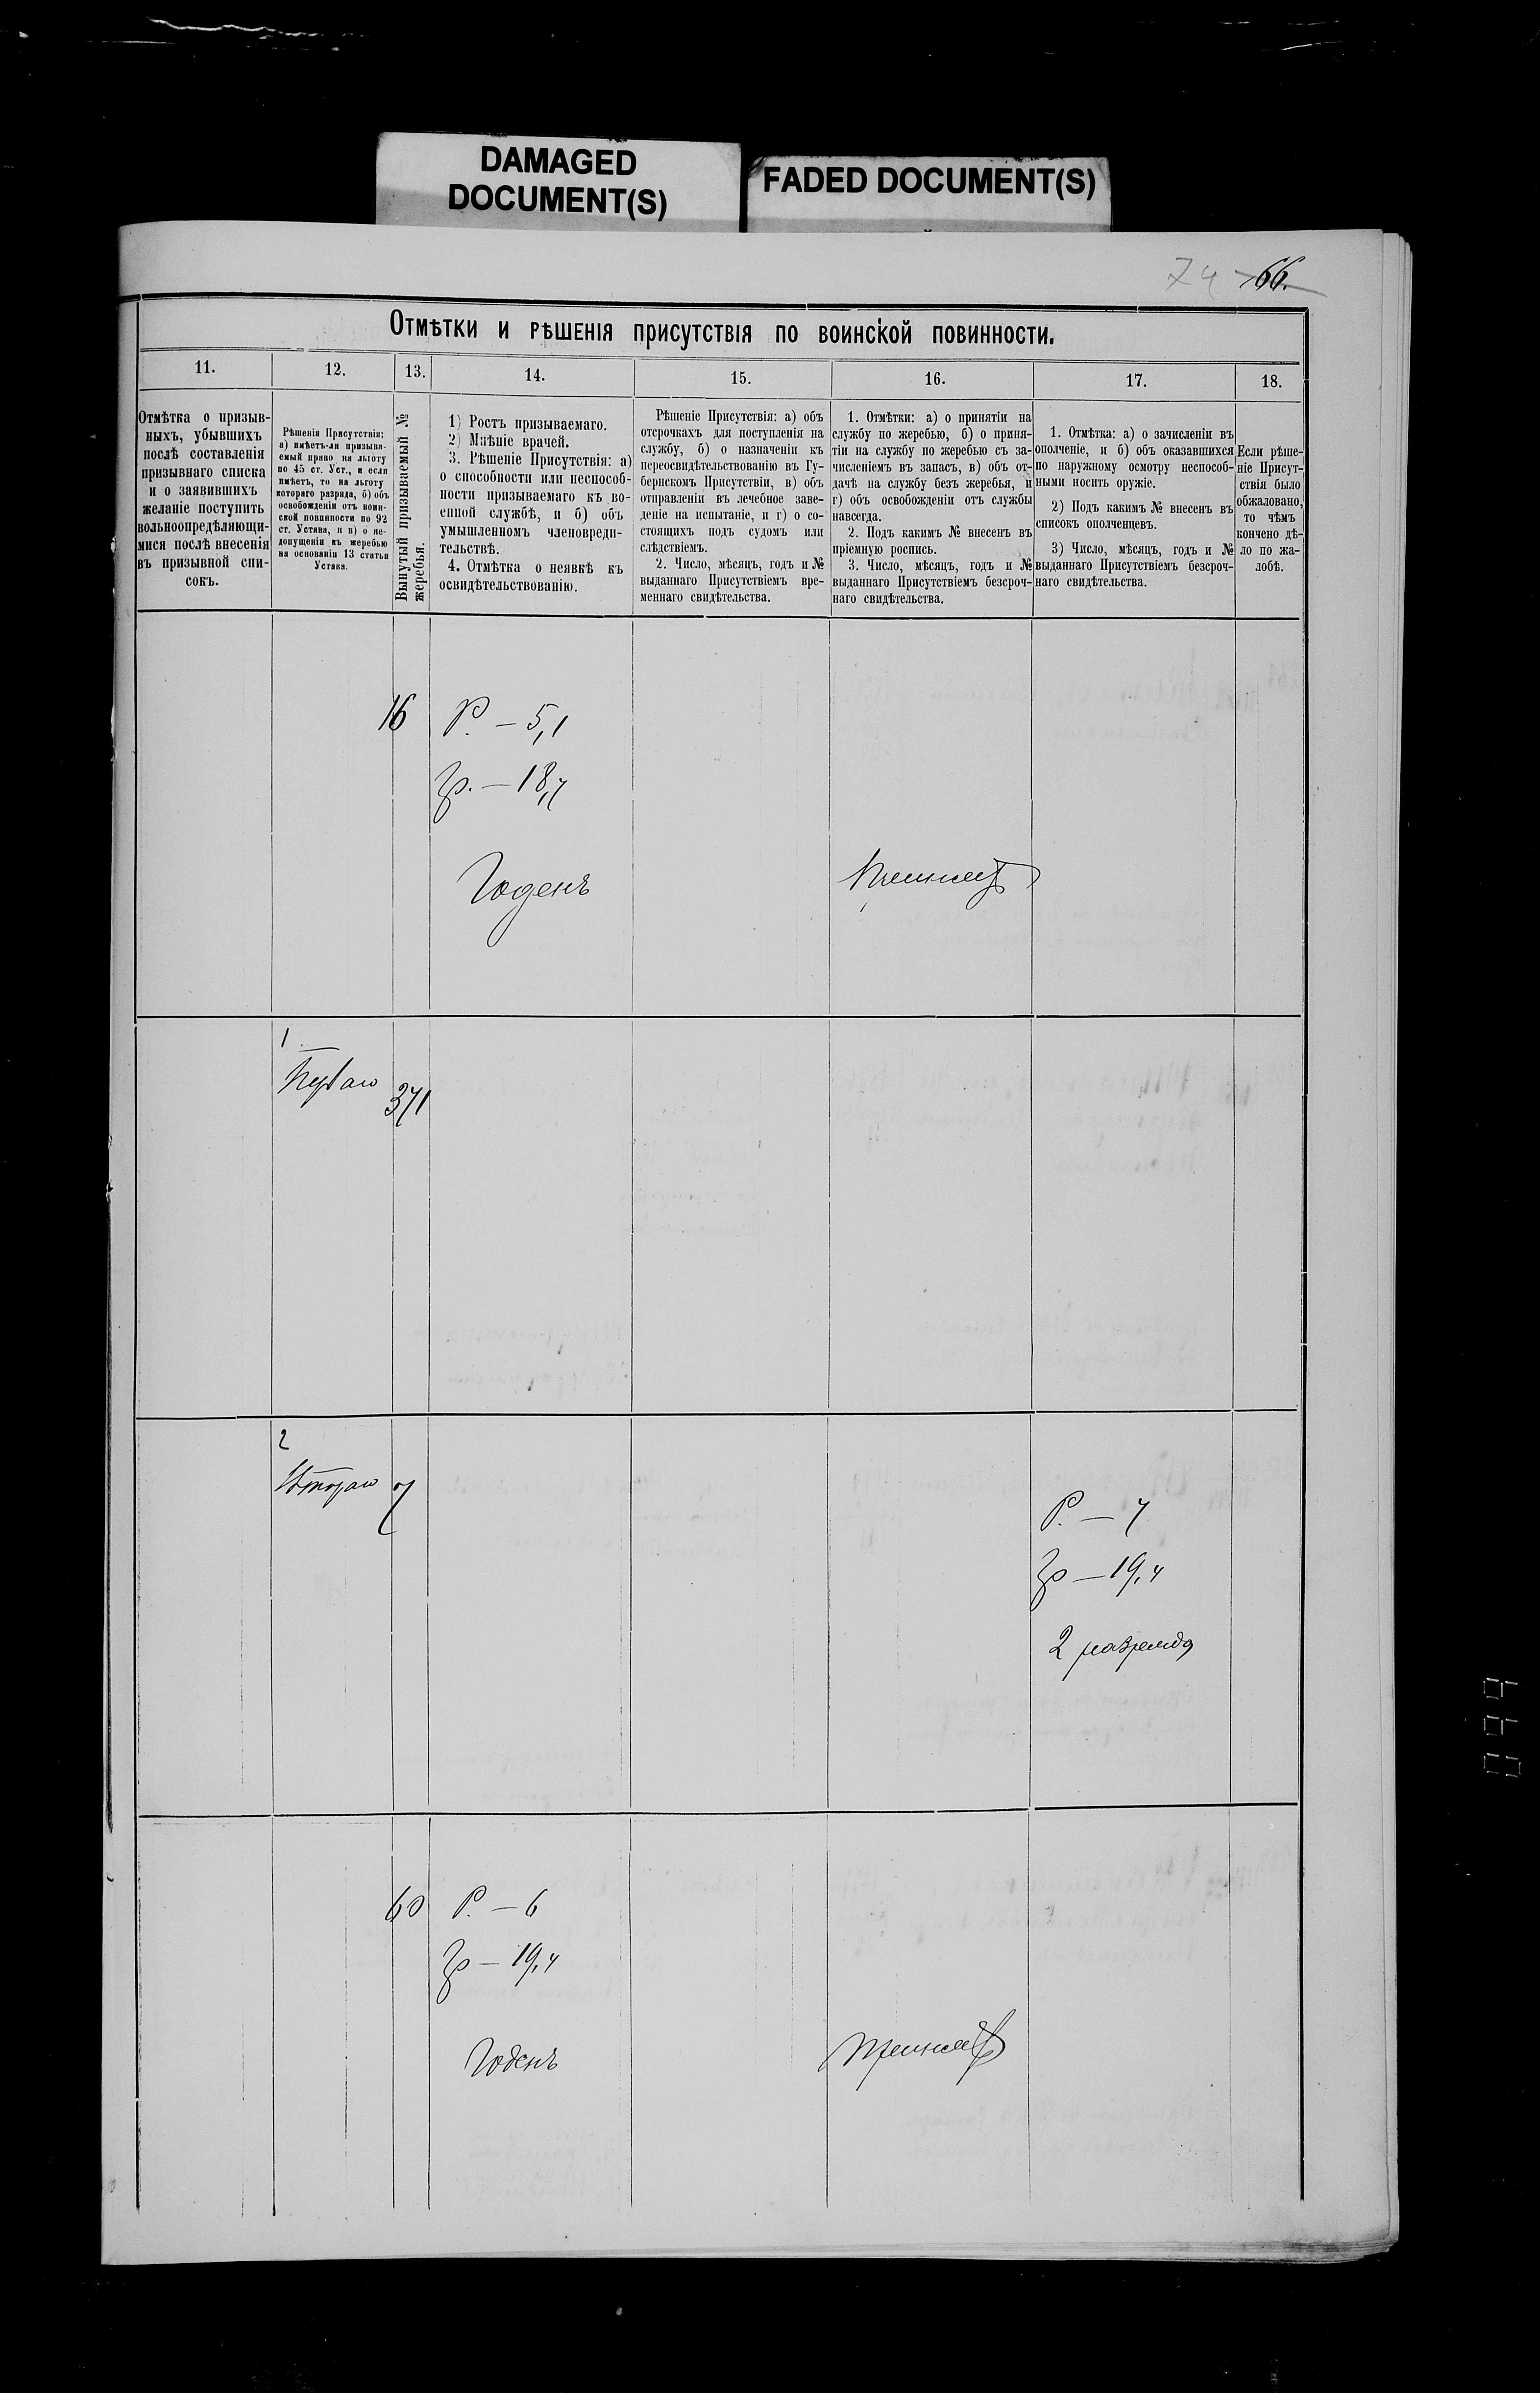 DAMAGED
DOCUMENT(S)
FADED DOCUMENT(S)
74 66.
Отмѣтки и рѣшенія присутствія по воинской повинности.
11.
12.
13.
14.
15.
16.
17.
18.
Отмѣтка о призыв-
ныхъ, убывшихъ
послѣ составленія
призывнаго списка
и о заявившихъ
желаніе поступить
вольноопредѣляющи-
мися послѣ внесенія
въ призывной спи-
сокъ.
Рѣшенія Присутствія:
а) имѣетъ-ли призыва-
емый право на льготу
по 45 ст. Уст., и если
имѣетъ, то на льготу
котораго разряда, б) объ
освобожденіи отъ воин-
ской повинности по 92
ст. Устава, и в) о не-
допущеніи къ жеребью
на основаніи 13 статьи
Устава.
Вынутый призываемый №
жеребья.
1) Ростъ призываемаго.
2) Мнѣніе врачей.
3. Рѣшеніе Присутствія: а)
о способности или неспособ-
ности призываемаго къ во-
енной службѣ, и б) объ
умышленномъ членовреди-
тельствѣ.
4. Отмѣтка о неявкѣ къ
освидѣтельствованію.
Рѣшеніе Присутствія: а) объ
отсрочкахъ для поступленія на
службу, б) о назначеніи къ
переосвидѣтельствованію въ Гу-
бернскомъ Присутствіи, в) объ
отправленіи въ лечебное заве-
деніе на испытаніе, и г) о со-
стоящихъ подъ судомъ или
слѣдствіемъ.
2. Число, мѣсяцъ, годъ и №
выданнаго Присутствіемъ вре-
меннаго свидѣтельства.
1. Отмѣтки: а) о принятіи на
службу по жеребью, б) о приня-
тіи на службу по жеребью съ за-
численіемъ въ запасъ, в) объ от-
дачѣ на службу безъ жеребья, и
г) объ освобожденіи отъ службы
навсегда.
2. Подъ какимъ № внесенъ въ
пріемную роспись.
3. Число, мѣсяцъ, годъ и №
выданнаго Присутствіемъ безсроч-
наго свидѣтельства.
1. Отмѣтка: а) о зачисленіи въ
ополченіе, и б) объ оказавшихся
по наружному осмотру неспособ-
ными носить оружіе.
2) Подъ какимъ № внесенъ въ
списокъ ополченцевъ.
3) Число, мѣсяцъ, годъ и №
выданнаго Присутствіемъ безсроч-
наго свидѣтельства.
Если рѣше-
ніе Присут-
ствія было
обжаловано,
то чѣмъ
кончено дѣ-
ло по жа-
лобѣ.
16 Р. — 5,1
гр. — 18,7
Годенъ
Принятъ
1
Перваго
371
2
Втораго 7
Р. — 7
гр — 19,4
2 разряда
60 Р. — 6
гр — 19,4
Годенъ
Принятъ
099